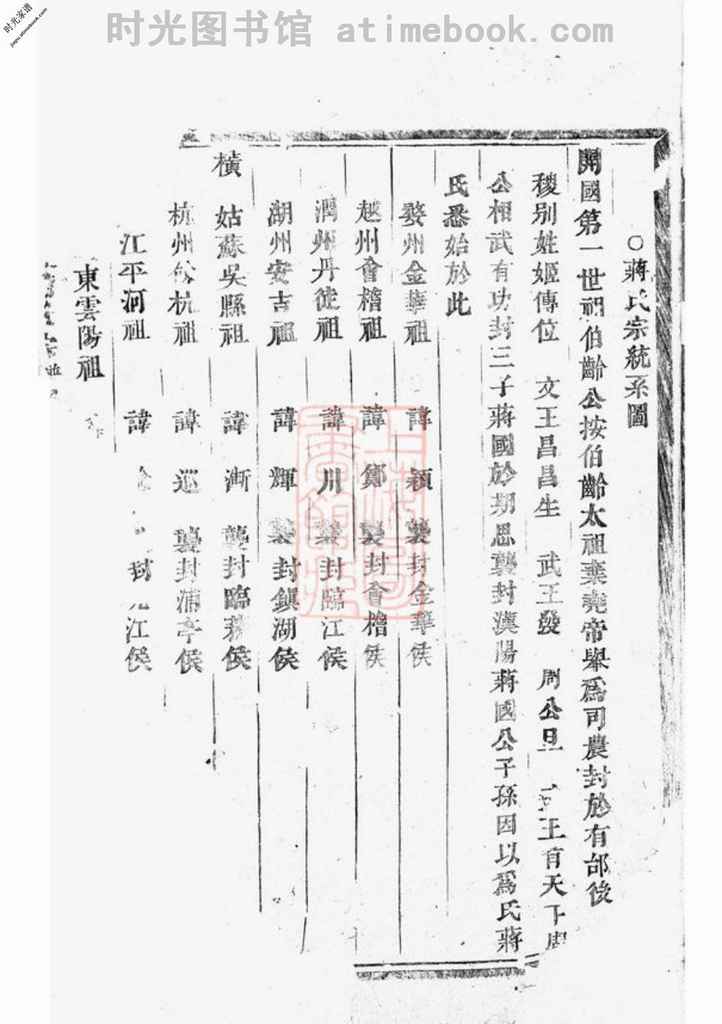 时光图书馆 atimebook.com
时光家谱
jiapu.atimebook.com
○蔣氏宗統系圖
開國第一世祖伯齡公按伯齡太祖棄堯帝舉爲司農封於有邰後
稷別姓姬傳位 文王昌昌生 武王發 周公旦 王有天下周
公相武有功封三子蔣國於期思襲封漢陽蔣國公子孫因以爲氏蔣
氏悉始於此
婺州金華祖 諱穎 襲封金華侯
越州會稽祖 諱鄭 襲封會稽侯
潤州丹徒祖 諱川 襲封臨江侯
湖州安吉祖 諱輝 襲封鎮湖侯
橫 姑蘇吳縣祖 諱漸 襲封臨務侯
杭州餘杭祖 諱巡 襲封浦亭侯
江平河祖 諱 封 江侯
東雲陽祖